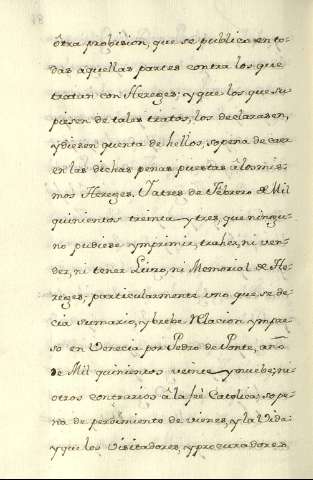 18
ôtra probision, que se publica en to-
das aquellas partes contra los que
tratan con Hereges: y que los que su-
piesen de tales tratos, los declarasen,
y diesen quenta de hellos, sopena de caer
en las dichas penas puestas à los mis-
mos Hereges. Y a tres de Febrero de Mil
quinientos treinta y tres, que ningu-
no pudiese ymprimir, traher, ni ven-
der, ni tener Libro, ni Memorial de He-
reges: particularmente uno que se de-
cia sumario, y brebe Relacion ympre-
so en Venecia por Pedro de Ponte, año
de Mil quinientos veinte y nuebe; ni
otros contrarios à la feé Catolica, sope-
na de perdimiento de vienes, y la Vida,
y que los Visitadores, y procuradores